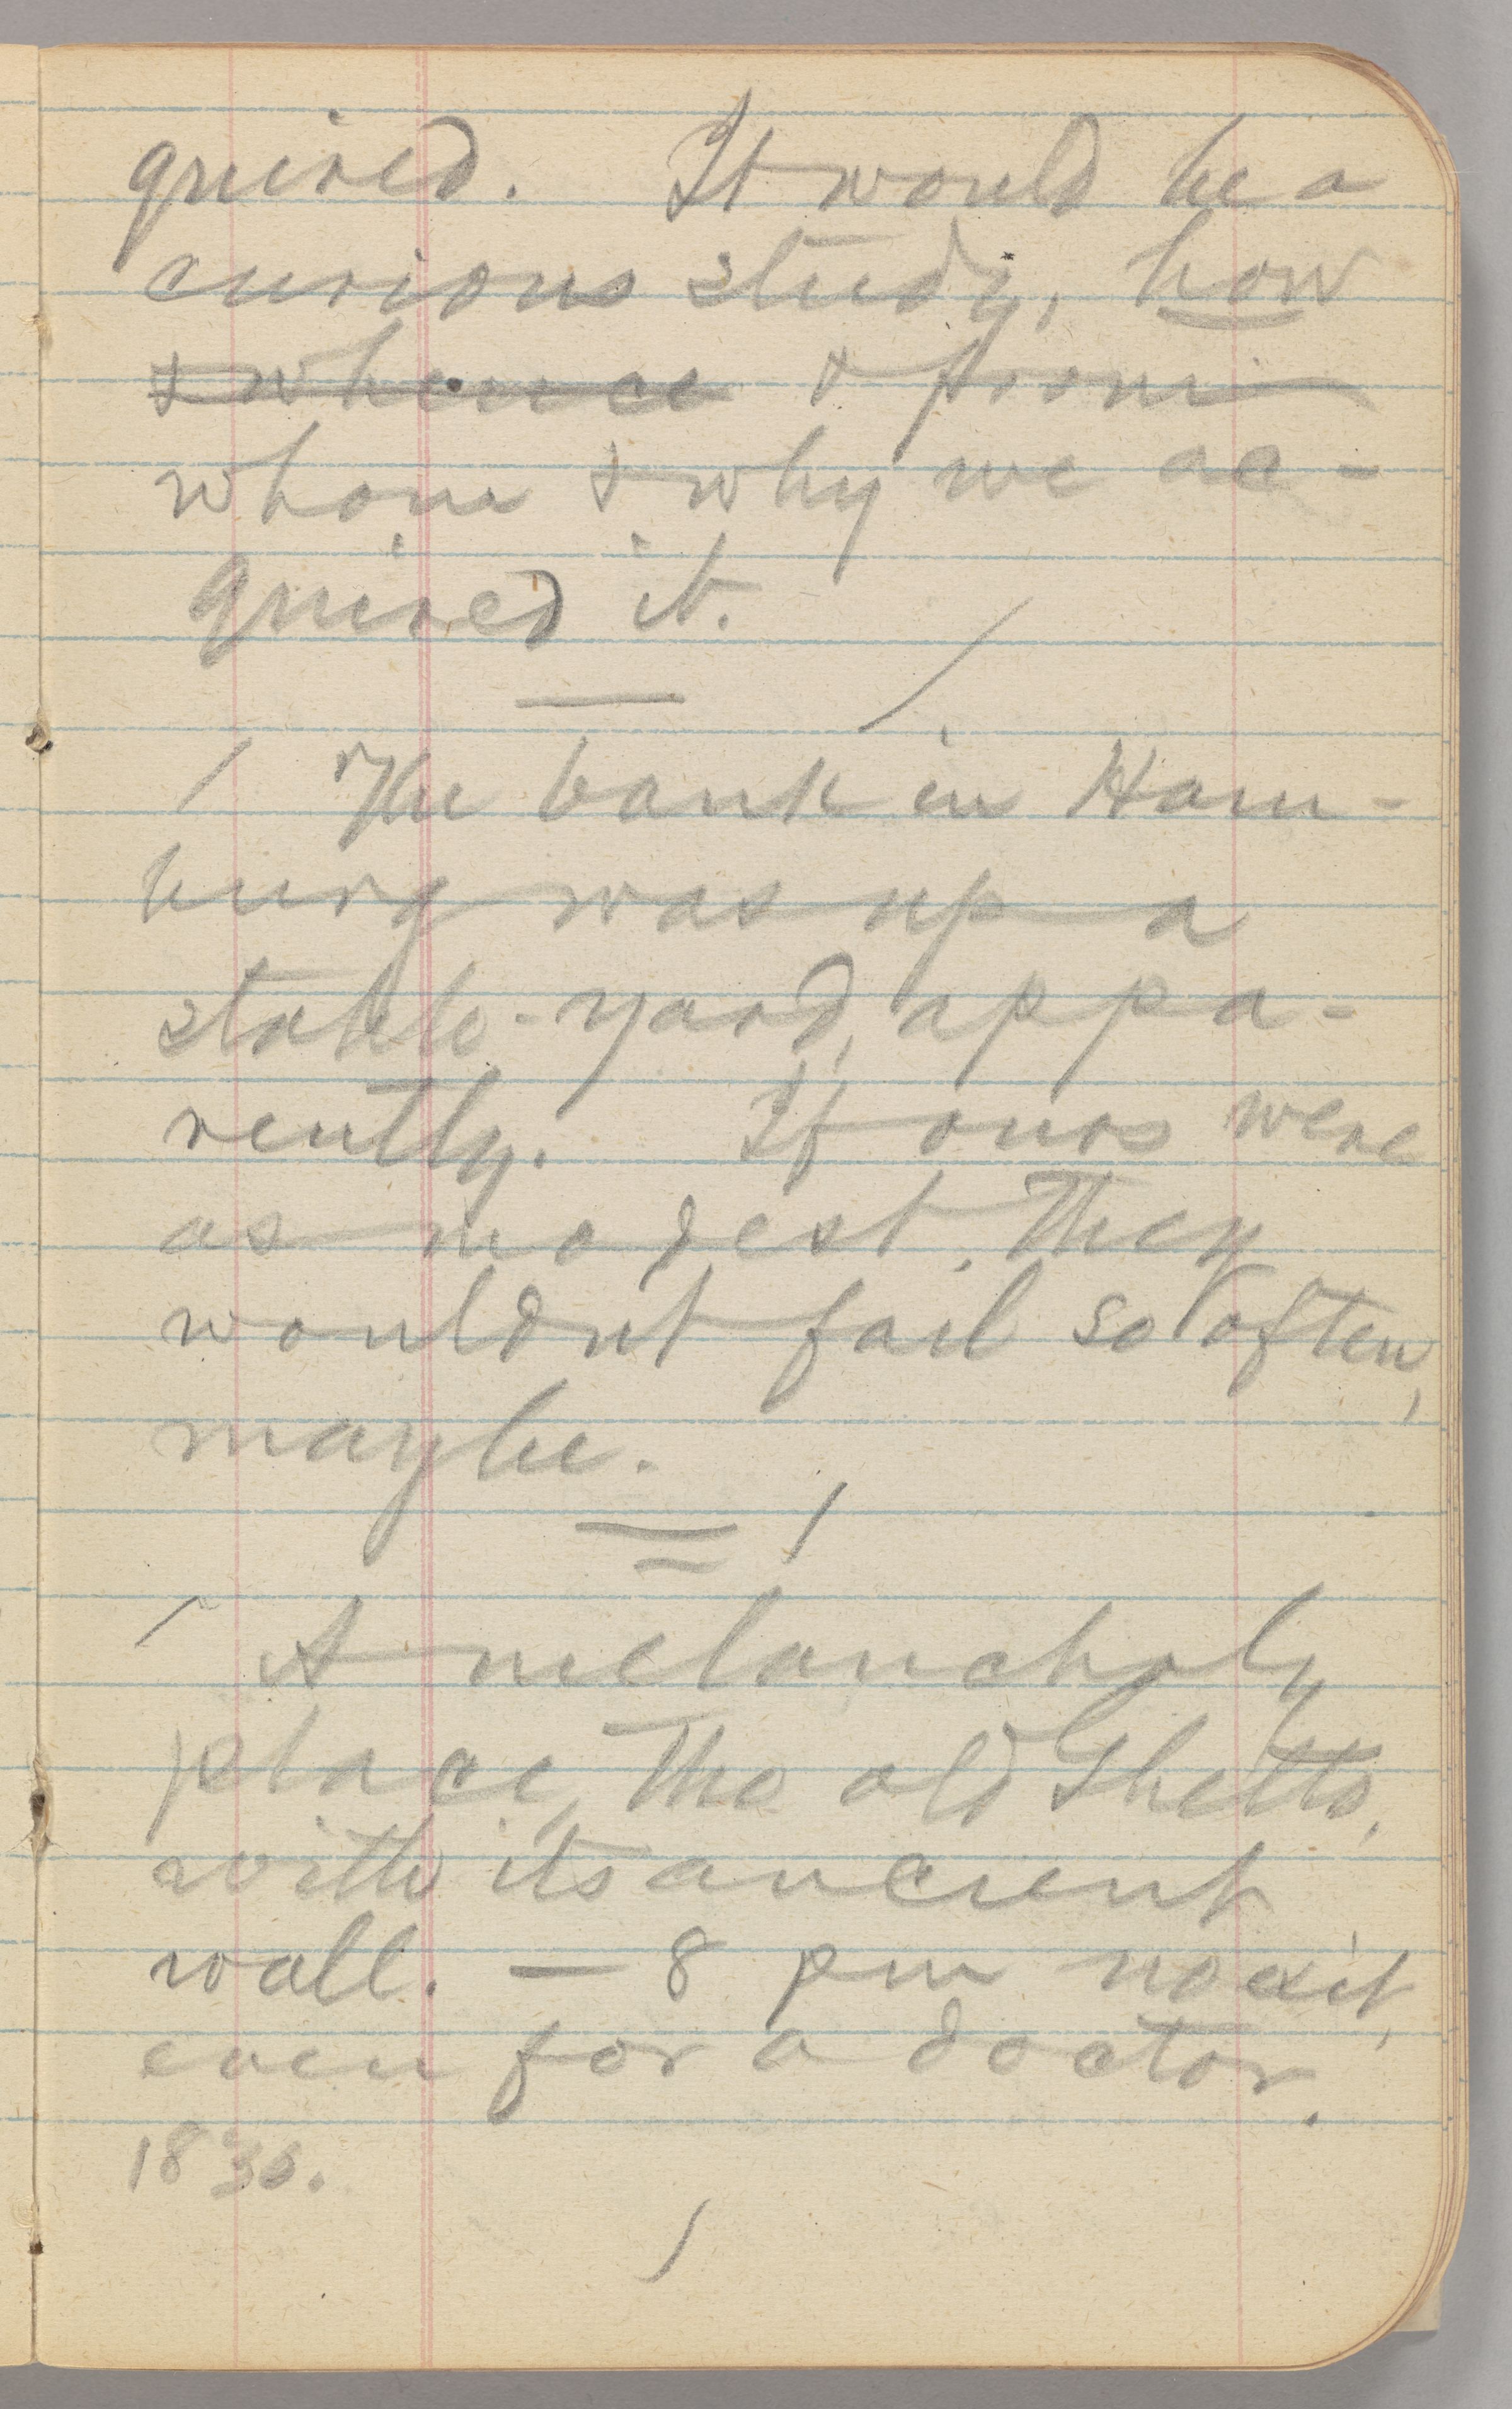 quired. It would be a
curious study, how
& whence & from
whom & why we ac-
quired it.
The bank in Ham-
burg was up a
stable-yard, appa-
rently. If ours were
as modest, they
wouldn't fail so often,
maybe.
A melancholy
place, the old Ghetto,
with its ancient
wall. — 8 pm no exit,
even for a doctor.
1835.